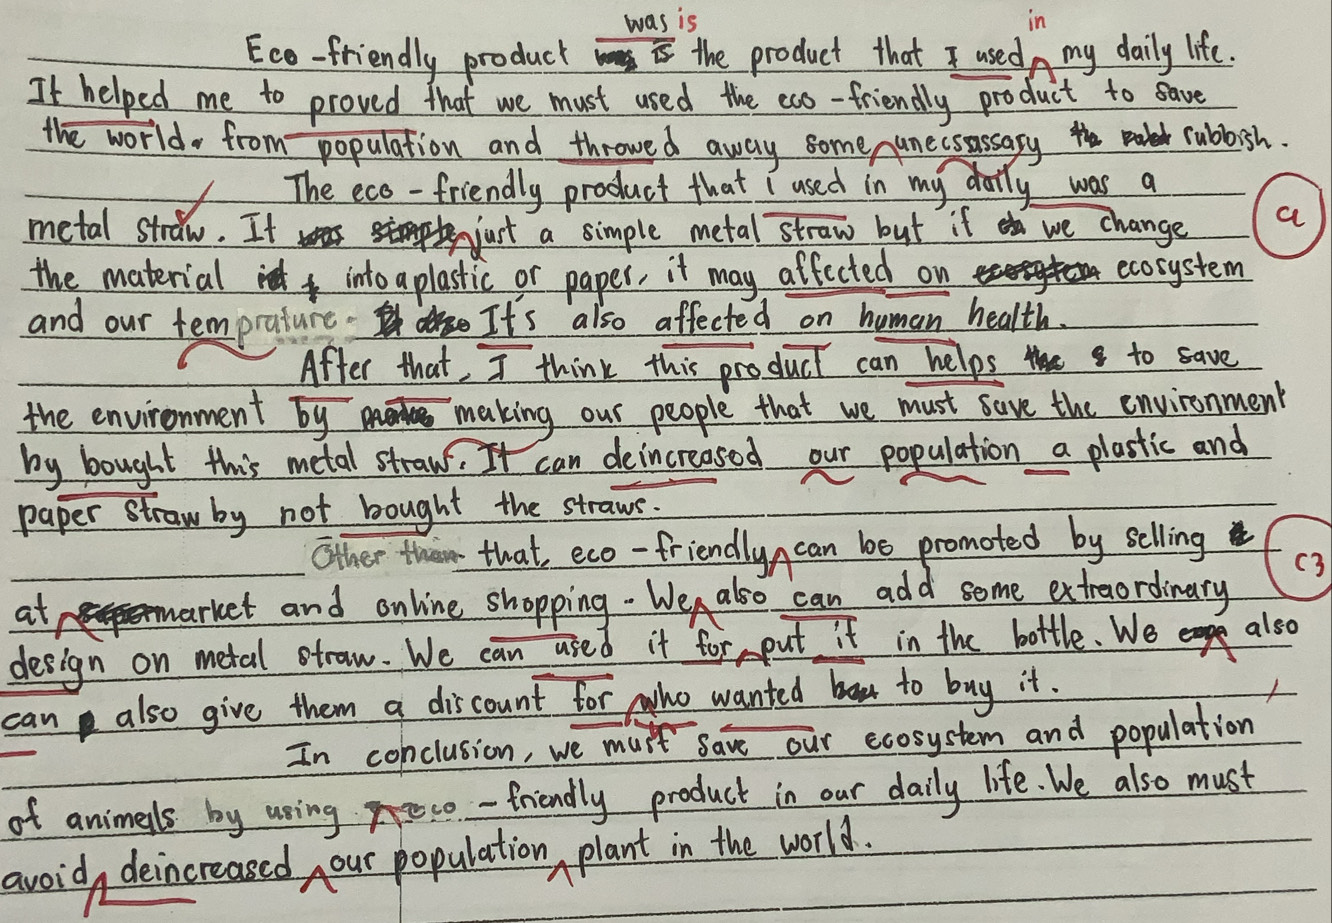 was is in
Eco-friendly product is the product that I used my daily life.
It helped me to proved that we must used the eco-friendly product to save
the world. from population and throwed away some unecssassary the rubbish.
The eco-friendly product that i used in my daily was a
metal straw. It was simple just a simple metal straw but if we change
a
the material into a plastic or paper, it may affected on ecosystem ecosystem
and our temprature. It also It's also affected on human health.
After that, I think this product can helps to save
the environment by make making our people that we must save the environment
by bought this metal straw. It can deincreased our population a plastic and
paper straw by not bought the straws.
Other than that, eco-friendly can be promoted by selling
at supermarket and online shopping. We also can add some extraordinary
C3
design on metal straw. We can used it for put it in the bottle. We also
can also give them a discount for who wanted to buy it.
In conclusion, we must save our ecosystem and population
of animals by using eco-friendly product in our daily life. We also must
avoid deincreased our population plant in the world.